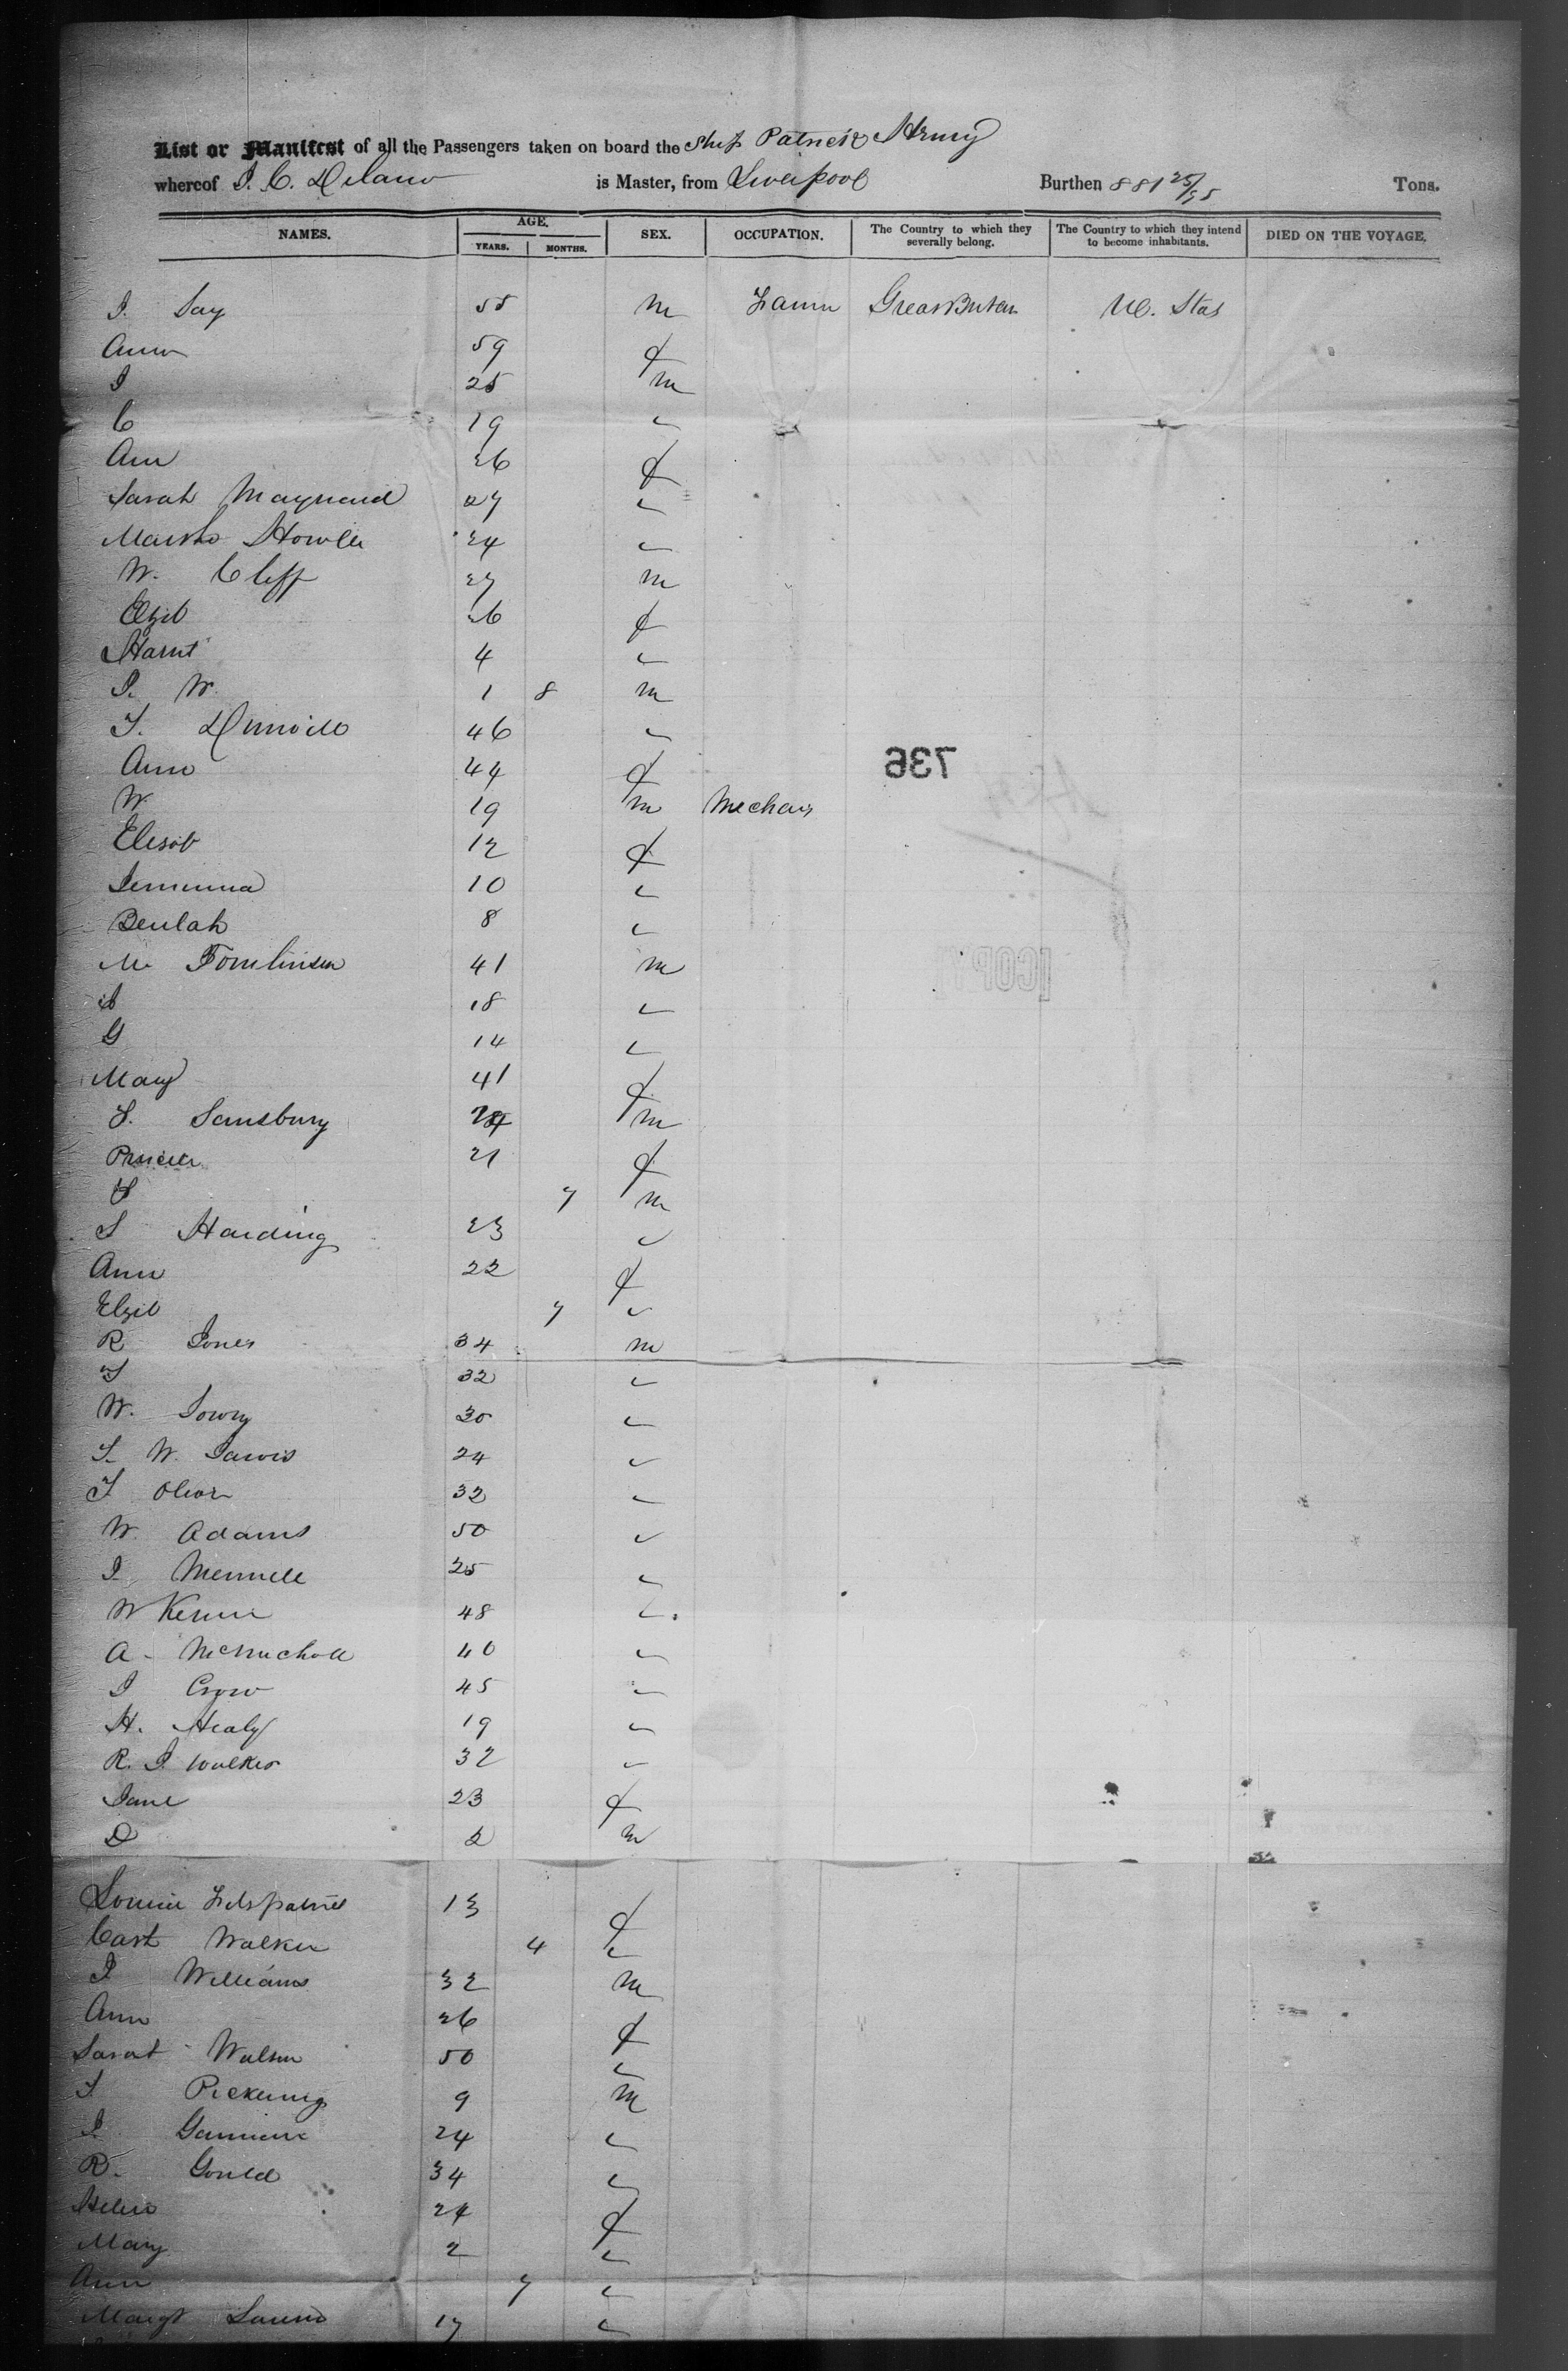 List or Manifest of all the Passengers taken on board the Ship Patrick Henry
whereof J. C. Delano is Master, from Liverpool Burthen 881 25/95 Tons.
NAMES. AGE. YEARS. MONTHS. SEX. OCCUPATION. The Country to which they severally belong. The Country to which they intend to become inhabitants. DIED ON THE VOYAGE.
J. Say 55 m Great Britain U. Stas
Ann 59 f
J 25 m
C 19 "
Ann 26 f
Sarah Maynard 27 "
24 "
W. Cliff 27 m
Elizb 26 f
Harrit 4 "
J. W. 1 8 m
T. 46 "
Ann 44 f
W 19 m Mechan
Elisab 12 f
Jemima 10 "
Beulah 8 "
M. Tomlinson 41 m
18 "
G 14 "
Mary 41 f
Sainsbury m
21 f
7 m
S Harding 23 "
Ann 22 f
Elzib 7 "
R Jones 34 m
T 32 "
W. Lowry 30 "
T. W. Jarvis 24 "
T Oliver 32 "
W. Adams 50 "
J. 25 "
W 48 "
A. McNicholl 40 "
J Crow 45 "
H. Healy 19 "
R. J. Walker 32 "
Jane 23 f
D 2 m
Fitspatrick 13 f
Cath Walker 4 "
J Williams 32 m
Ann 26 f
Sarah 50 "
T Pickering 9 m
J. 24 "
R. Gould 34 "
Helen 24 f
Mary 2 "
Ann 7 "
Margt 17 "
736
[COPY]